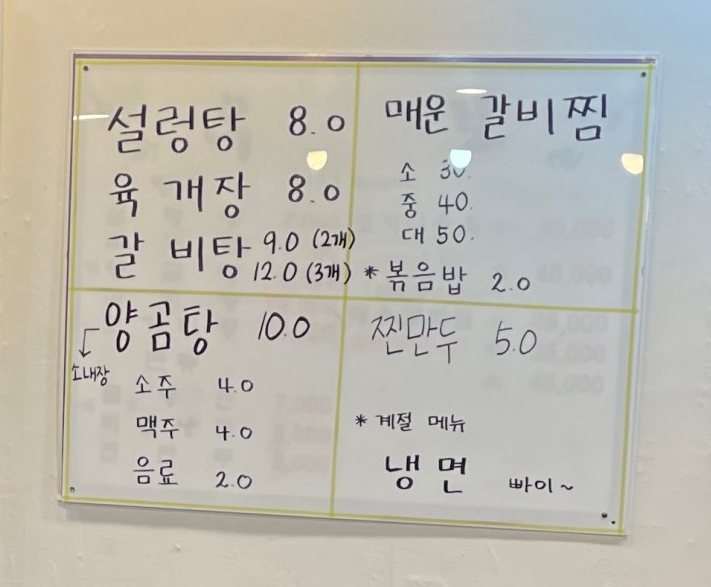 설렁탕 8.0
육개장 8.0
갈비탕 9.0 (2개)
12.0 (3개)
양곰탕 10.0
소내장
소주 4.0
맥주 4.0
음료 2.0
매운 갈비찜
소 30.
중 40.
대 50.
* 볶음밥 2.0
찐만두 5.0
* 계절 메뉴
냉면 빠이~